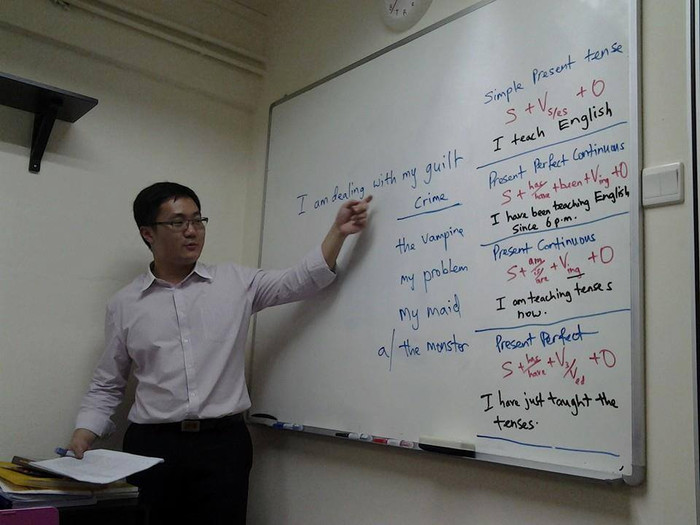 I am dealing with my guilt
Crime
the vampire
my problem
My maid
a/ the monster
Simple Present tense
S + V s/es + O
I teach English
Present Perfect Continuous
S + has/have + been + Ving + O
I have been teaching English
since 6 p.m.
Present Continuous
S + am/is/are + Ving + O
I am teaching tenses
now.
Present Perfect
S + has/have + V3/Ved + O
I have just taught the
tenses.